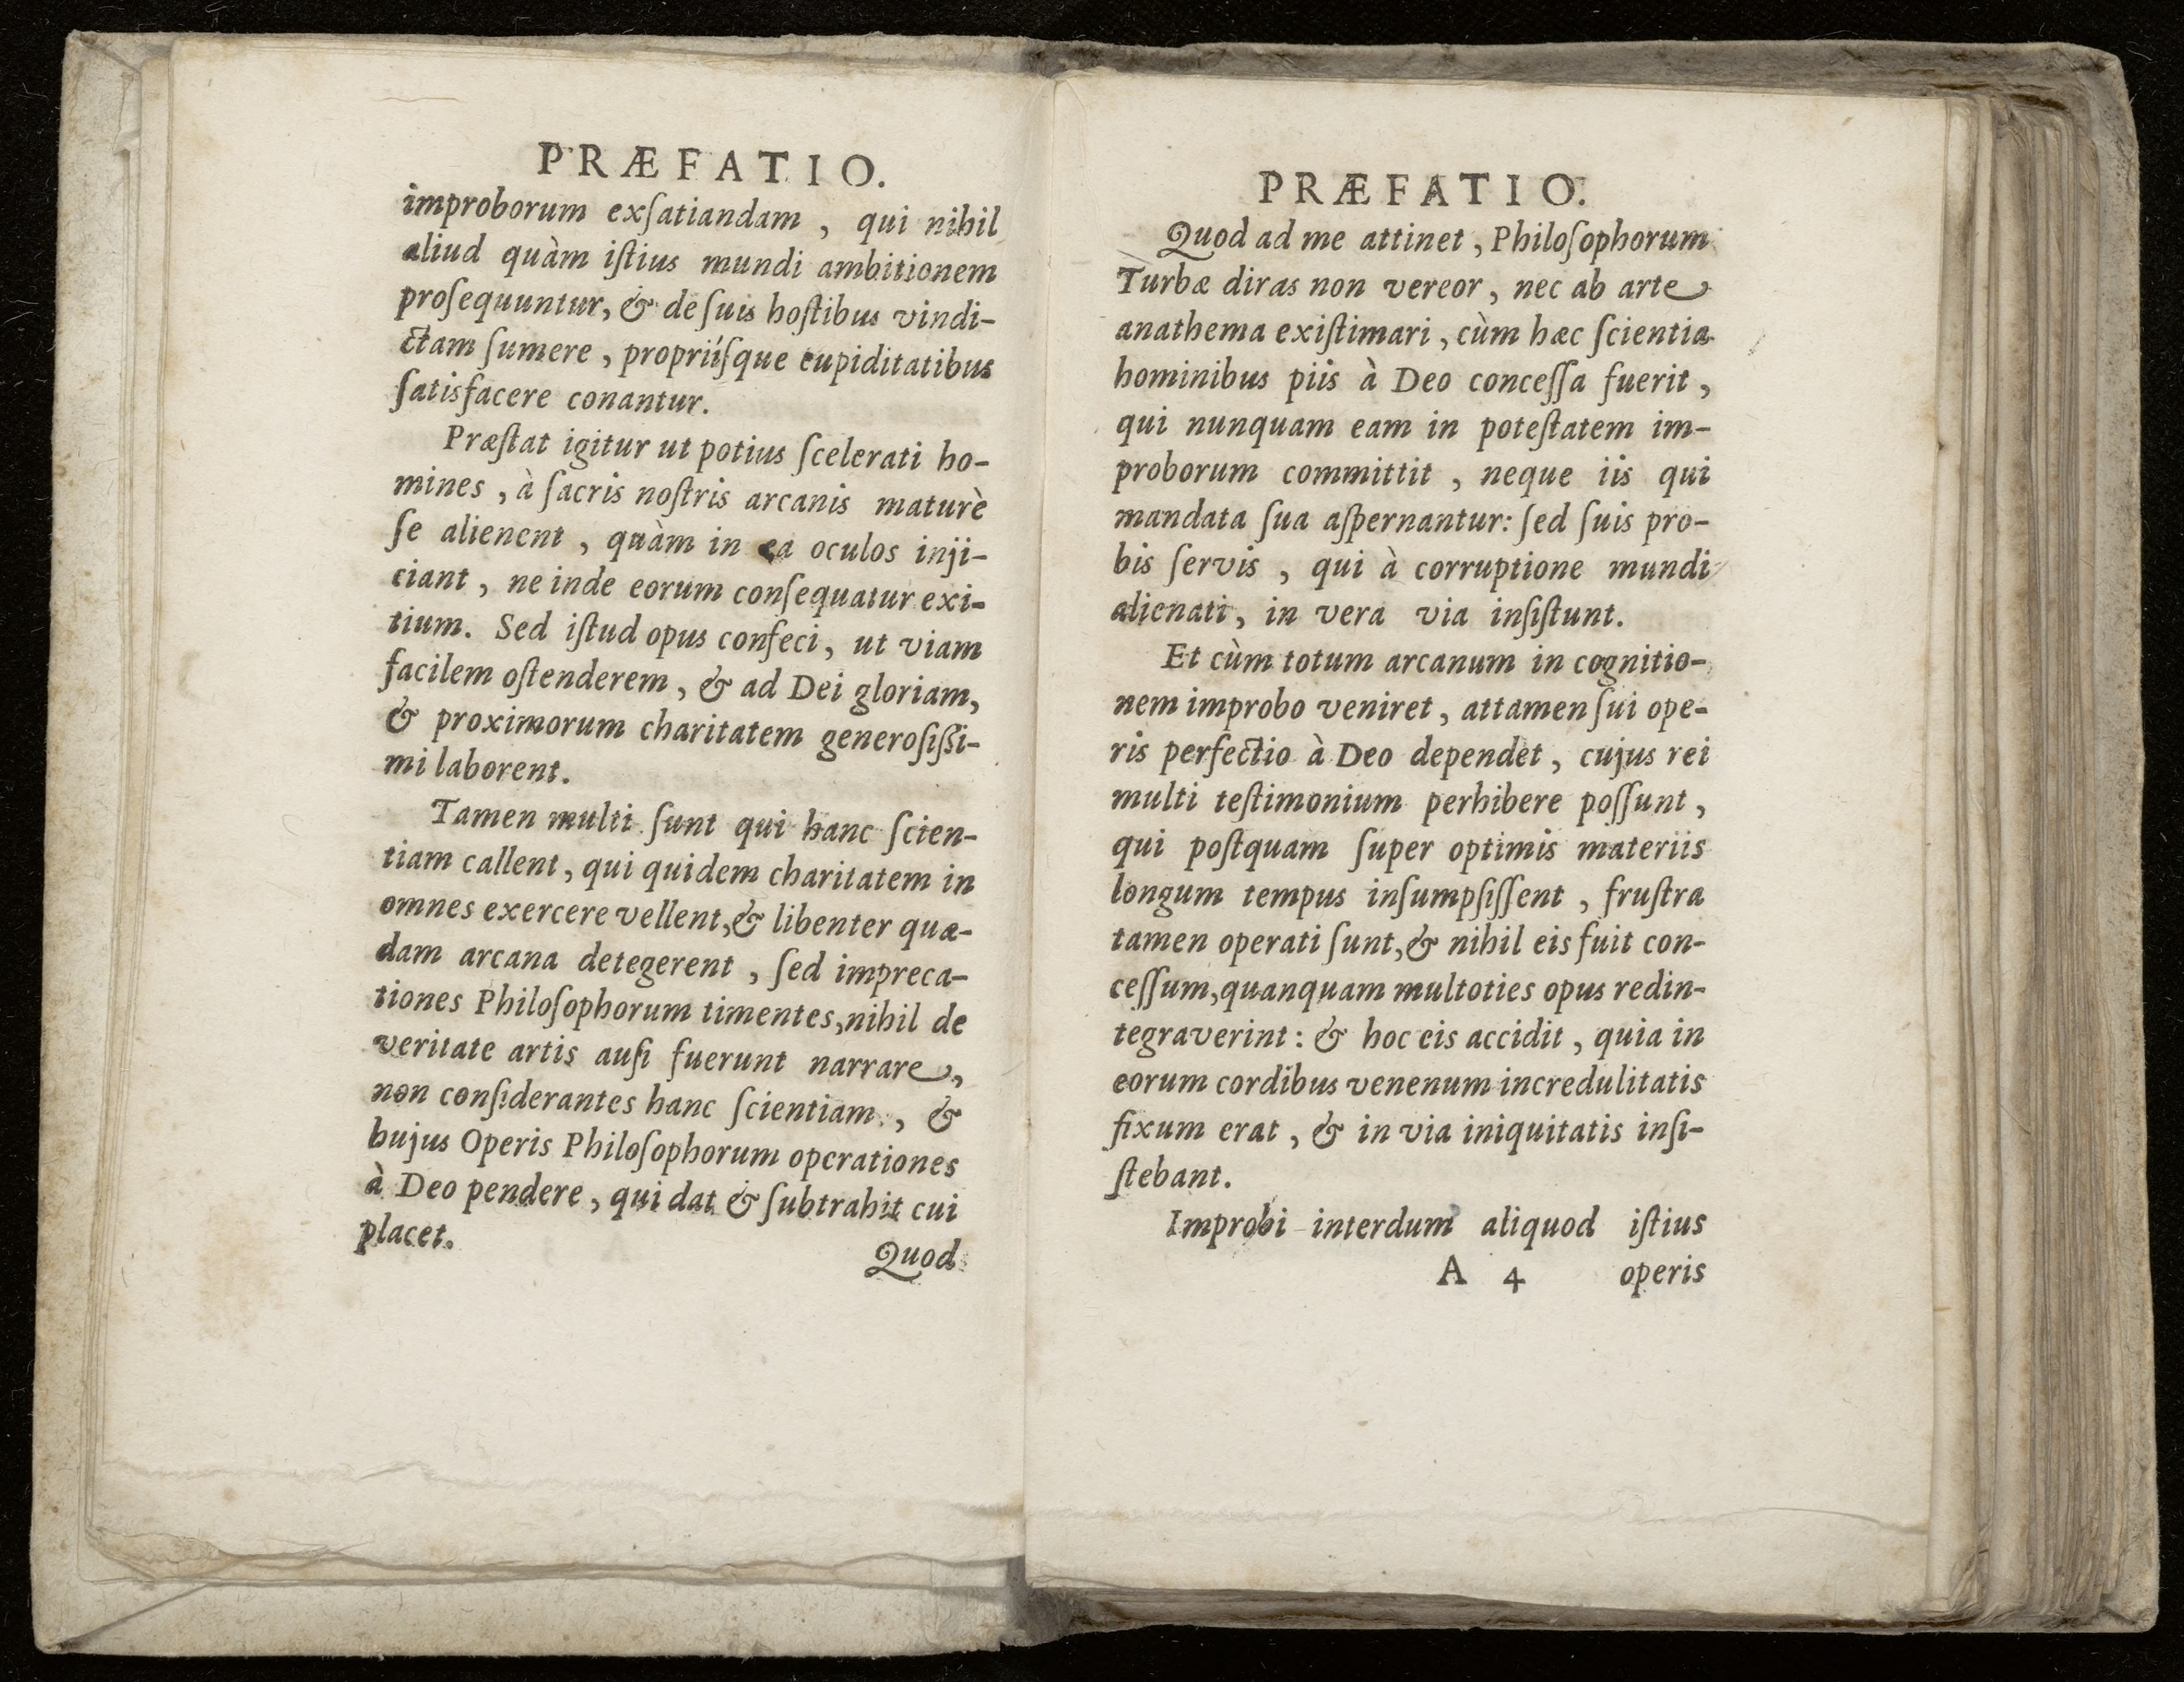 PRÆFATIO.
improborum exſatiandam , qui nihil
aliud quàm iſtius mundi ambitionem
proſequuntur, & de ſuis hoſtibus vindi-
ctam ſumere , propriíſque cupiditatibus
ſatisfacere conantur.
Præſtat igitur ut potius ſcelerati ho-
mines , à ſacris noſtris arcanis maturè
ſe alienent , quàm in ea oculos inji-
ciant , ne inde eorum conſequatur exi-
tium. Sed iſtud opus confeci, ut viam
facilem oſtenderem , & ad Dei gloriam,
& proximorum charitatem generoſißi-
mi laborent.
Tamen multi ſunt qui hanc ſcien-
tiam callent , qui quidem charitatem in
omnes exercere vellent, & libenter quæ-
dam arcana detegerent , ſed impreca-
tiones Philoſophorum timentes, nihil de
veritate artis auſi fuerunt narrare,
non conſiderantes hanc ſcientiam , &
hujus Operis Philoſophorum operationes
à Deo pendere , qui dat & ſubtrahit cui
placet.
Quod
PRÆFATIO.
Quod ad me attinet , Philoſophorum
Turbæ diras non vereor , nec ab arte
anathema exiſtimari , cùm hæc ſcientia
hominibus piis à Deo conceſſa fuerit ,
qui nunquam eam in poteſtatem im-
proborum committit , neque iis qui
mandata ſua aſpernantur: ſed ſuis pro-
bis ſervis , qui à corruptione mundi
alienati , in vera via inſiſtunt.
Et cùm totum arcanum in cognitio-
nem improbo veniret , attamen ſui ope-
ris perfectio à Deo dependet , cujus rei
multi teſtimonium perhibere poſſunt ,
qui poſtquam ſuper optimis materiis
longum tempus inſumpſiſſent , fruſtra
tamen operati ſunt, & nihil eis fuit con-
ceſſum, quanquam multoties opus redin-
tegraverint : & hoc eis accidit , quia in
eorum cordibus venenum incredulitatis
fixum erat , & in via iniquitatis inſi-
ſtebant.
Improbi interdum aliquod iſtius
A 4 operis